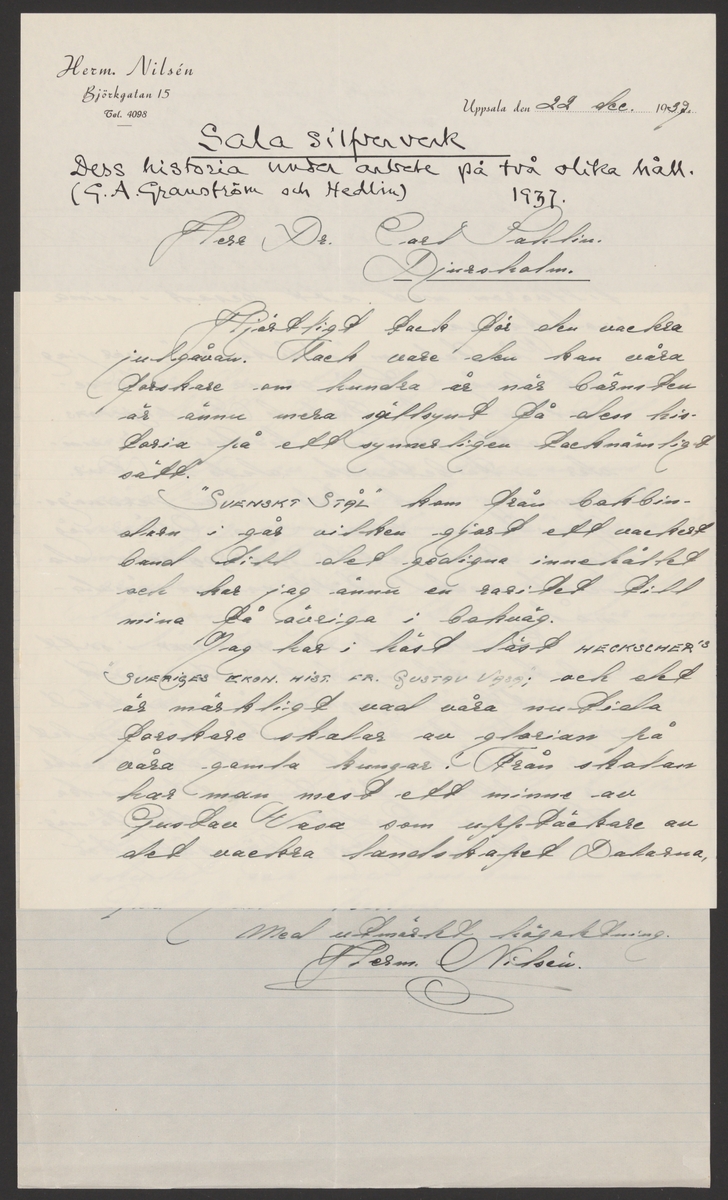 Herm. Nilsén
Björkgatan 15
Tel. 4098
Uppsala den 22 dec. 1937.
Sala silfververk
Dess historia under arbete på två olika håll.
(G. A. Granström och Hedlin) 1937.
Herr Dr. Carl Sahlin.
Djursholm.
Hjärtligt tack för den vackra
julgåvan. Tack vare den kan våra
forskare om hundra år när bärnsten
är ännu mera sällsynt få dess his-
toria på ett synnerligen tacknämligt
sätt.
"SVENSKT STÅL" kom från bokbin-
daren i går vilken gjort ett vackert
band till det gedigna innehållet
och har jag ännu en raritet till
mina få övriga i bokväg.
Jag har i höst läst HECKSCHER'S
"SVERIGES EKON. HIST. FR. GUSTAV VASA; och det
är märkligt vad våra nutida
forskare skalar av glorian på
våra gamla kungar! Från skolan
har man mest ett minne av
Gustav Wasa som upptäckare av
det vackra landskapet Dalarna,
Med utmärkt högaktning.
Herm. Nilsén.